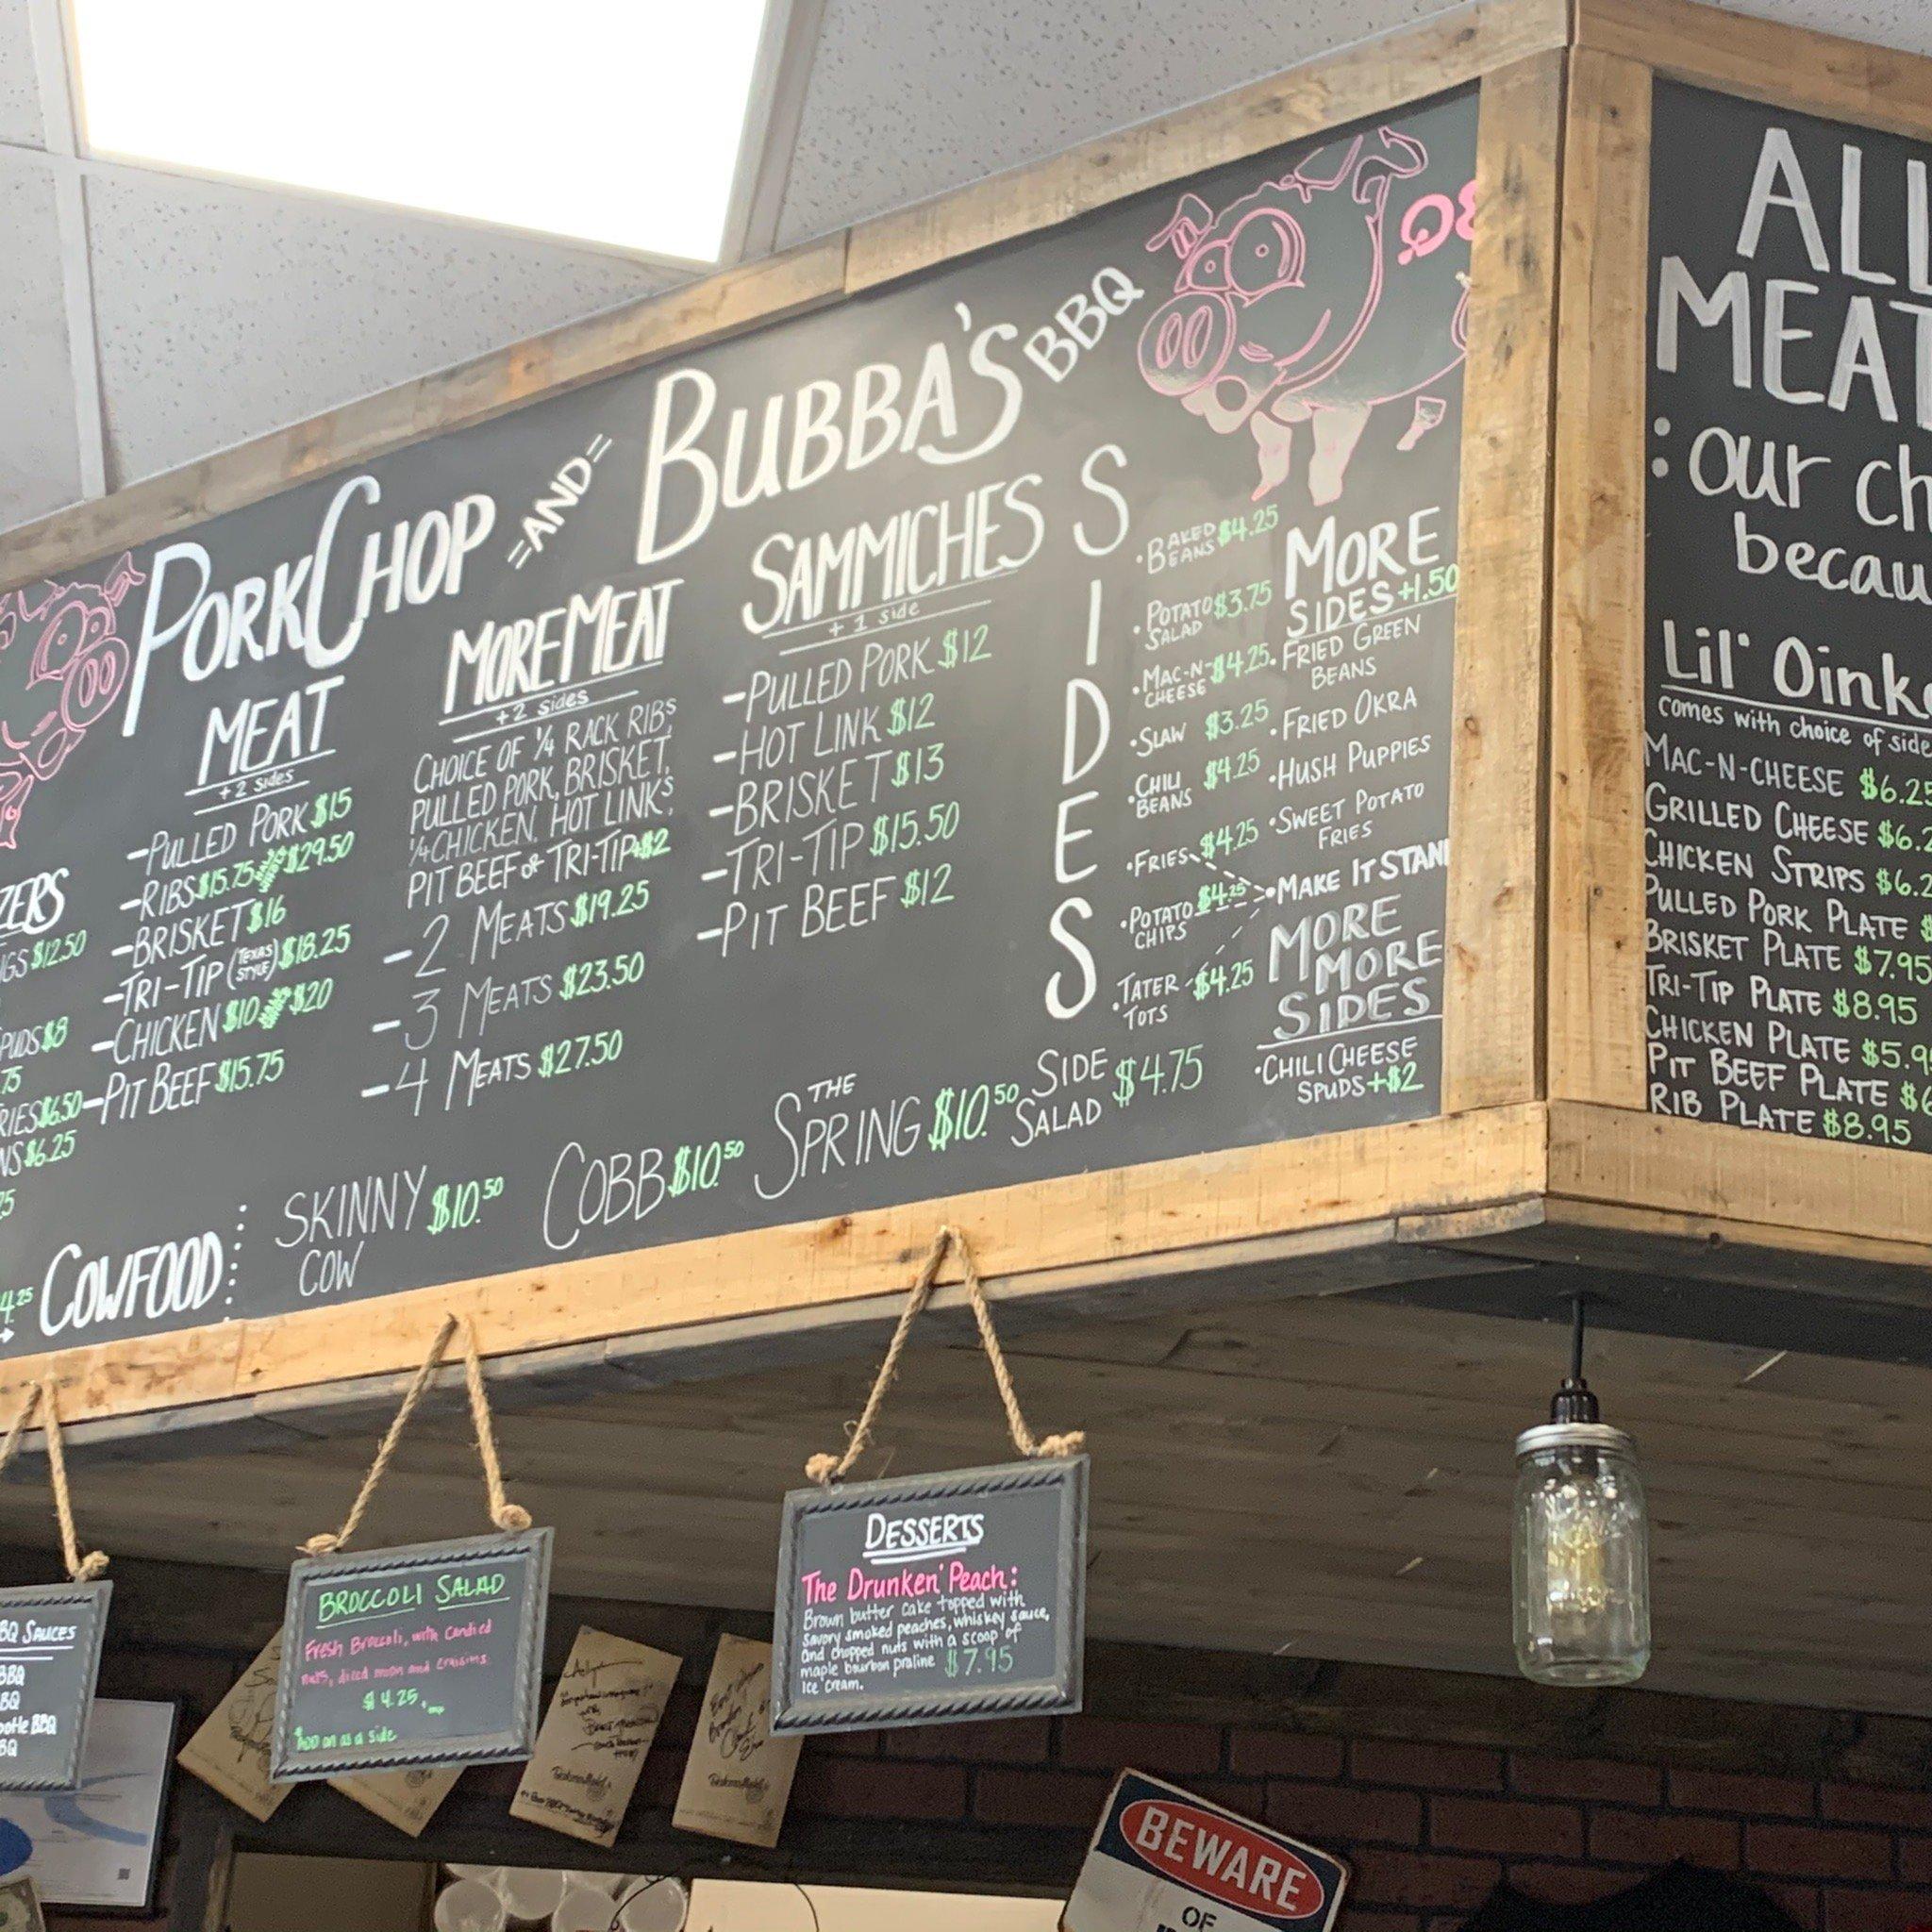 PORKCHOP =AND= BUBBA'S BBQ
MEAT
+ 2 sides
-PULLED PORK $15
-RIBS $15.75 $29.50
-BRISKET $16
-TRI-TIP (TEXAS STYLE) $18.25
-CHICKEN $10 $20
-PIT BEEF $15.75
MORE MEAT
+ 2 sides
CHOICE OF 1/4 RACK RIBS,
PULLED PORK, BRISKET,
1/4 CHICKEN, HOT LINKS,
PIT BEEF or TRI-TIP +$2
-2 MEATS $19.25
-3 MEATS $23.50
-4 MEATS $27.50
SAMMICHES
+ 1 side
-PULLED PORK $12
-HOT LINK $12
-BRISKET $13
-TRI-TIP $15.50
-PIT BEEF $12
SIDES
•BAKED BEANS $4.25
•POTATO SALAD $3.75
•MAC-N-CHEESE $4.25
•SLAW $3.25
•CHILI BEANS $4.25
•FRIES $4.25
•POTATO CHIPS $4.25
•TATER TOTS $4.25
MORE
SIDES +1.50
•FRIED GREEN
BEANS
•FRIED OKRA
•HUSH PUPPIES
•SWEET POTATO
FRIES
•MAKE IT STAN
MORE
MORE
SIDES
•CHILI CHEESE
SPUDS +$2
ZERS
GS $12.50
PUDS $8
75
RIES $6.50
NS $6.25
25
4.25
COWFOOD:
SKINNY COW $10.50
COBB $10.50
THE SPRING $10.50
SIDE SALAD $4.75
ALL
MEAT
: our ch
becau
Lil' Oink
comes with choice of side
MAC-N-CHEESE $6.25
GRILLED CHEESE $6.2
CHICKEN STRIPS $6.2
PULLED PORK PLATE $
BRISKET PLATE $7.95
TRI-TIP PLATE $8.95
CHICKEN PLATE $5.9
PIT BEEF PLATE $6
RIB PLATE $8.95
BQ SAUCES
BBQ
BQ
potle BBQ
BQ
BROCCOLI SALAD
Fresh Broccoli, with Candied
nuts, diced onion and craisins
$4.25
Add on as a side
DESSERTS
The Drunken' Peach:
Brown butter cake topped with
savory smoked peaches, whiskey sauce,
and chopped nuts with a scoop of
maple bourbon praline $7.95
ice cream.
BEWARE
OF